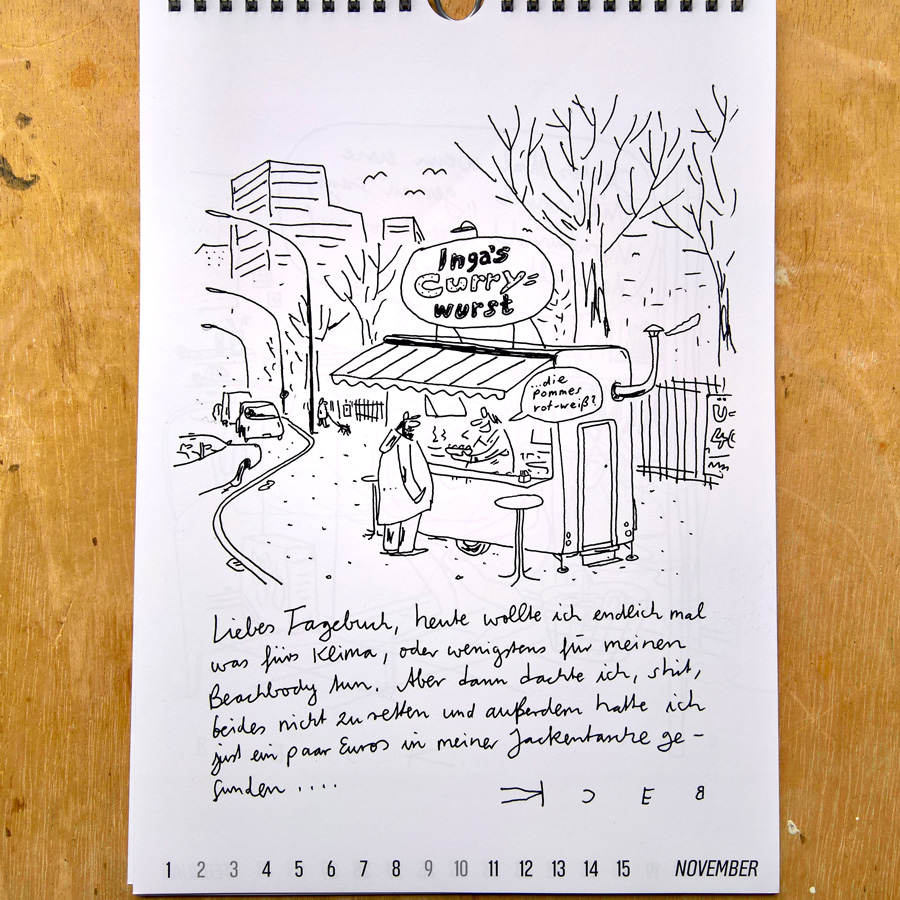 Inga's
Curry=
wurst
...die
pommes
rot-weiß?
Ü=
Liebes Tagebuch, heute wollte ich endlich mal
was fürs Klima, oder wenigstens für meinen
Beachbody tun. Aber dann dachte ich, shit,
beides nicht zu retten und außerdem hatte ich
just ein paar Euros in meiner Jackentasche ge-
funden ....
1 2 3 4 5 6 7 8 9 10 11 12 13 14 15 NOVEMBER